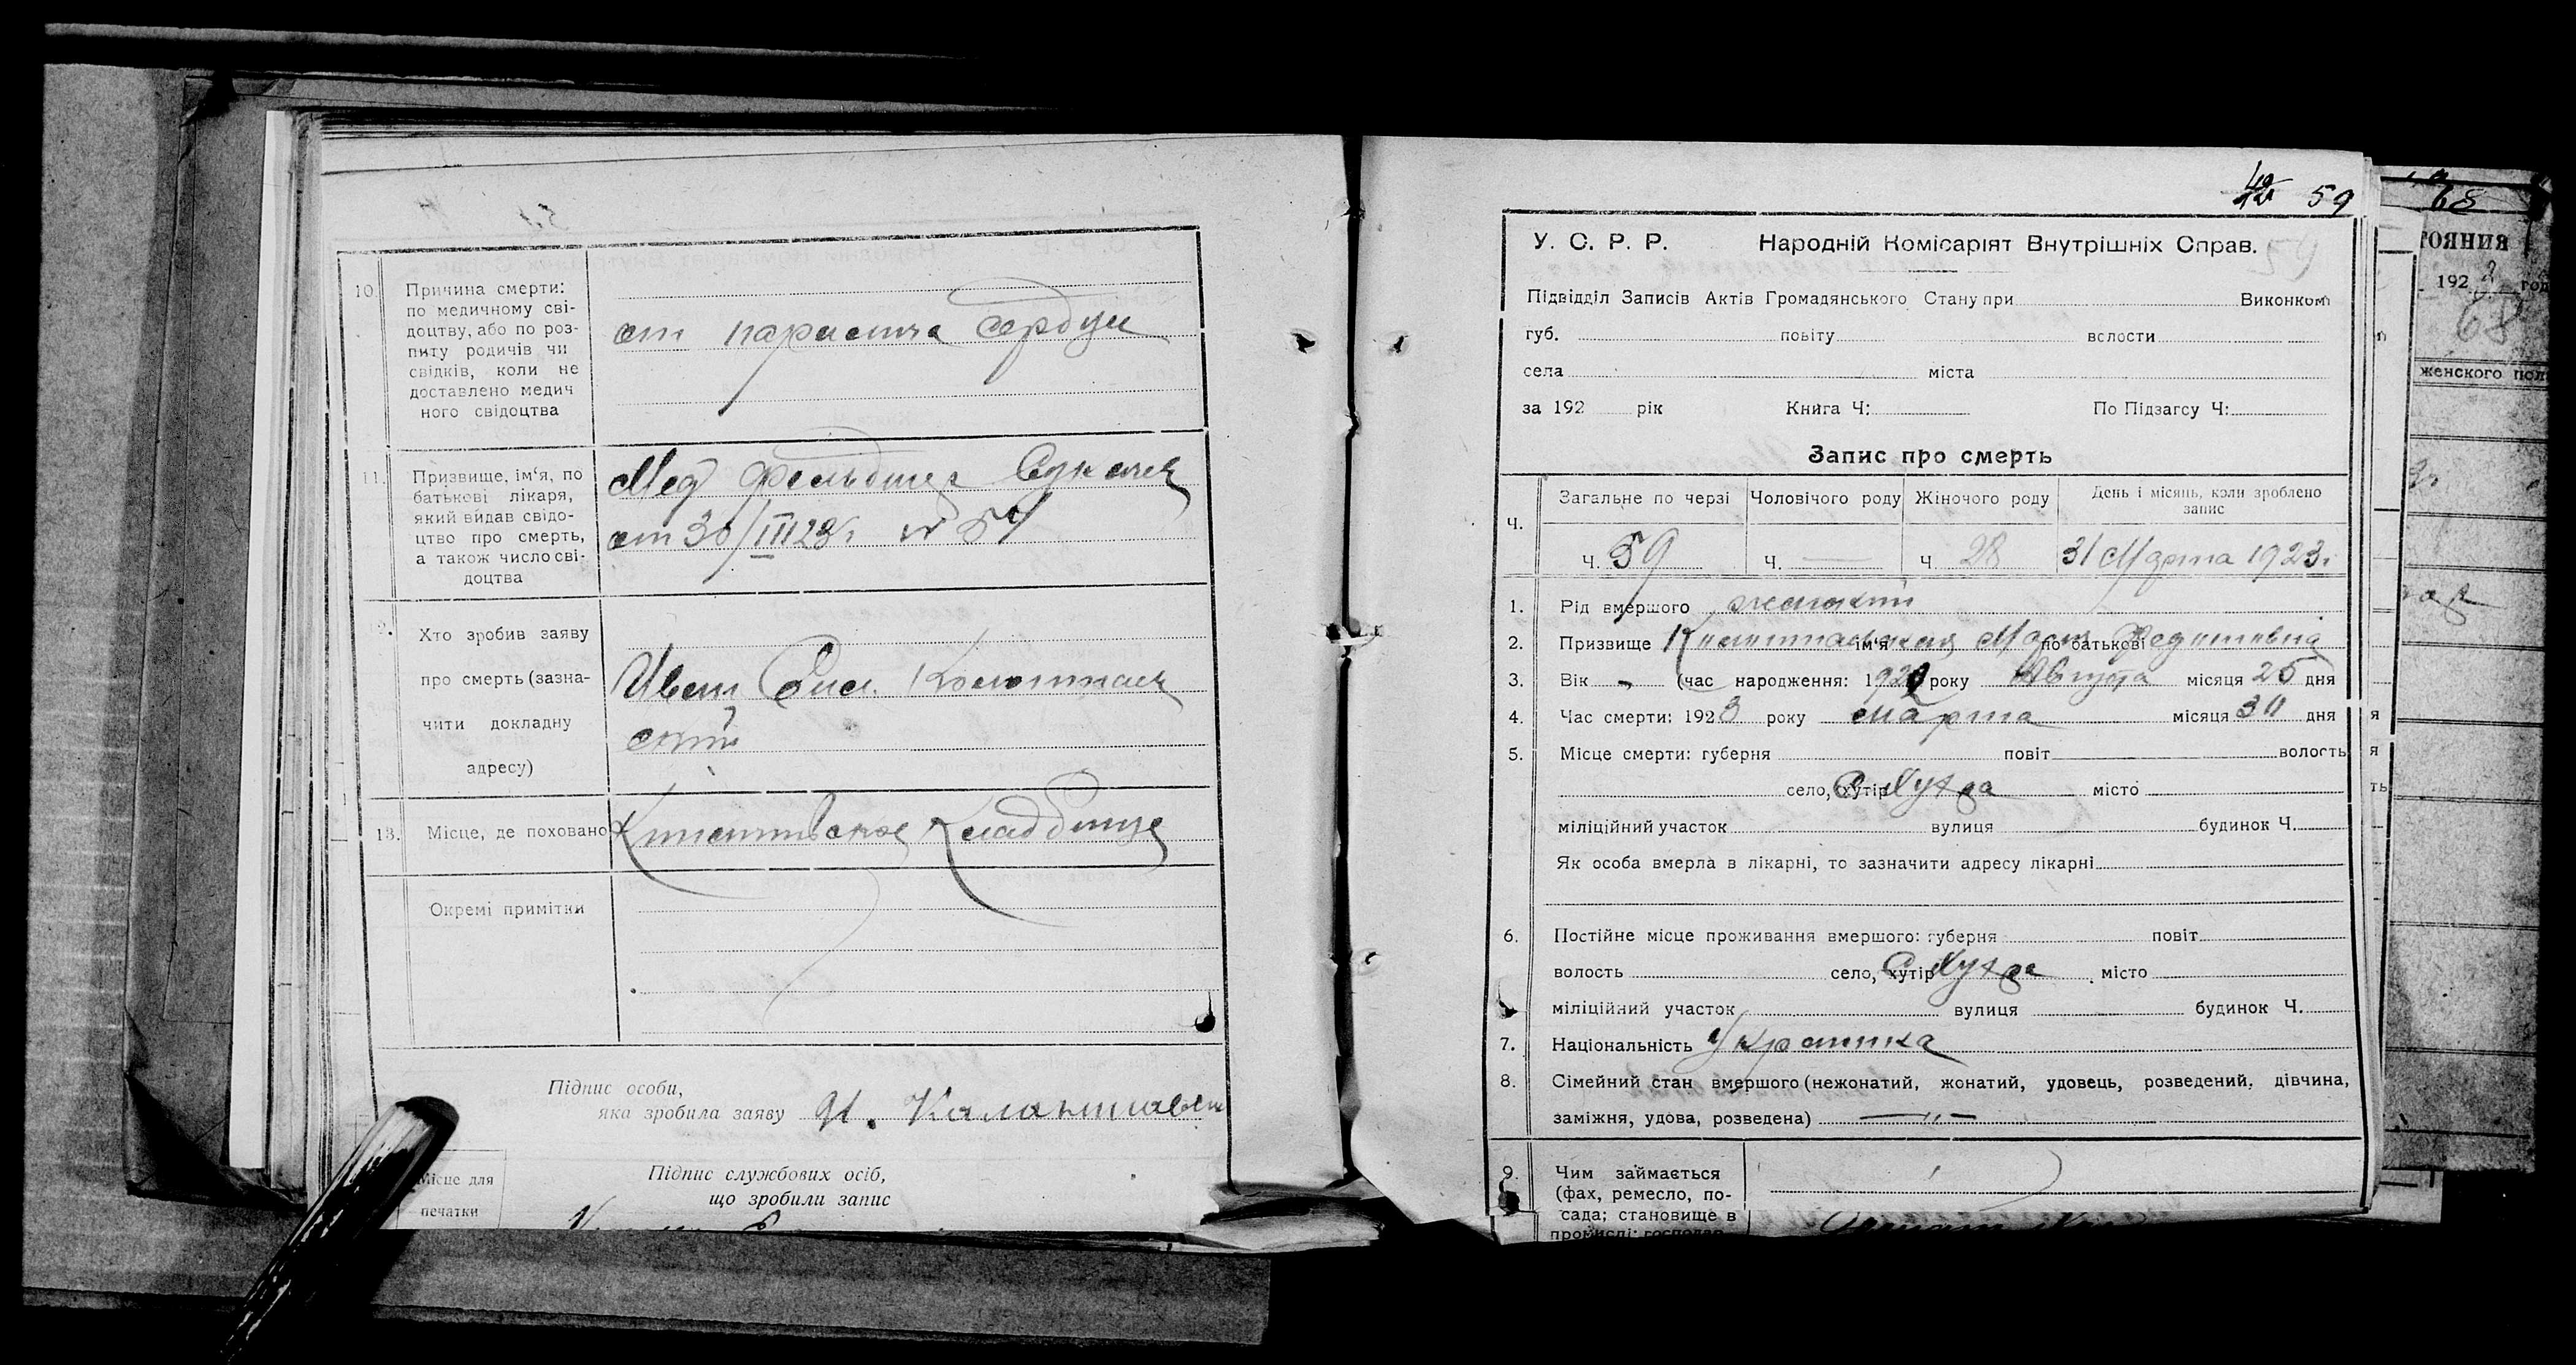 10.
Причина смерти:
по медичному сві-
доцтву, або по роз-
питу родичів чи
свідків, коли не
доставлено медич
ного свідоцтва
от паралича сердца
11.
Призвище, ім'я, по
батькові лікаря,
який видав свідо-
цтво про смерть,
а також число сві-
доцтва
Мед фельдшер
от 30/III 23 г. № 54
Хто зробив заяву
про смерть (зазна-
чити докладну
адресу)
Иван
ский
13.
Місце, де поховано
Кладбище
Окремі примітки
Підпис особи,
яка зробила заяву И.
Місце для
печатки
Підпис службових осіб,
що зробили запис
42 59
У. С. Р. Р. Народній Комісаріят Внутрішніх Справ.
59
Підвідділ Записів Актів Громадянського Стану при Виконком
губ. повіту волости
села міста
за 192 рік Книга Ч: По Підзагсу Ч:
Запис про смерть
Ч.
Загальне по черзі Чоловічого роду Жіночого роду День і місяць, коли зроблено запис
Ч. 59 Ч. — Ч 28 31 Марта 1923 г.
1. Рід вмершого женский
2. Призвище ім'я Мария по батькові
3. Вік (час народження: 192 року Августа місяця 25 дня
4. Час смерти: 1923 року марта місяця 30 дня
5. Місце смерти: губерня повіт волость
село, хутір місто
міліційний участок вулиця будинок Ч.
Як особа вмерла в лікарні, то зазначити адресу лікарні
6. Постійне місце проживання вмершого: губерня повіт
волость село, хутір місто
міліційний участок вулиця будинок Ч.
7. Національність Украинка
8. Сімейний стан вмершого (нежонатий, жонатий, удовець, розведений, дівчина,
заміжня, удова, розведена) —"—
9. Чим займається
(фах, ремесло, по-
сада; становище в
промислі; господар
68
тояния
192 2 год
68
женского пол
я
я
ть